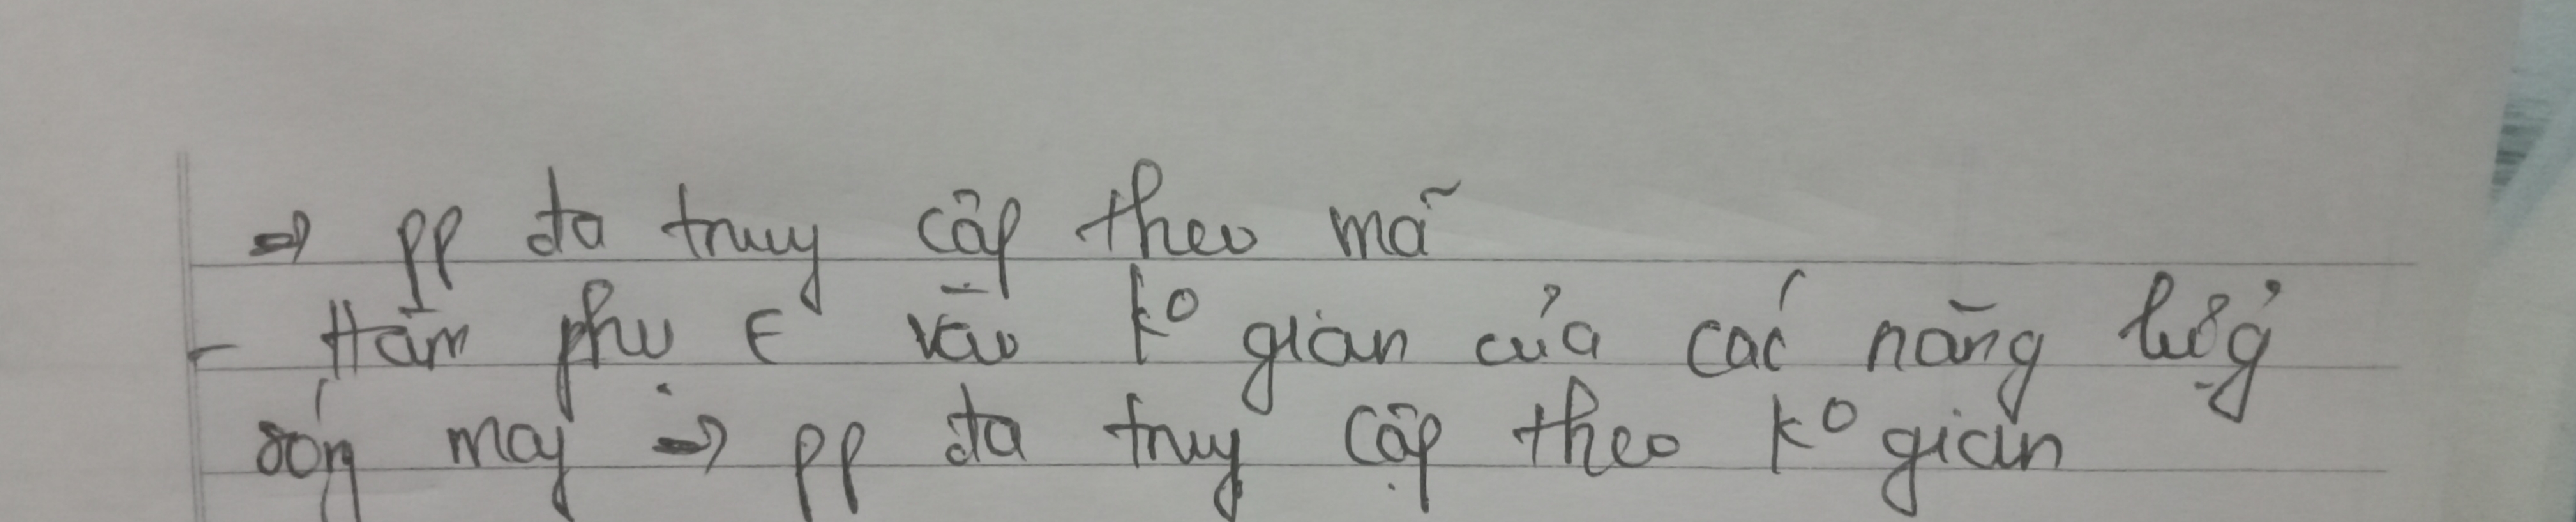 ⇒ pp đa truy cập theo mã
- Hàm phụ ∈ vào kº gian của các năng lượng
sóng máy ⇒ pp đa truy cập theo kº gian